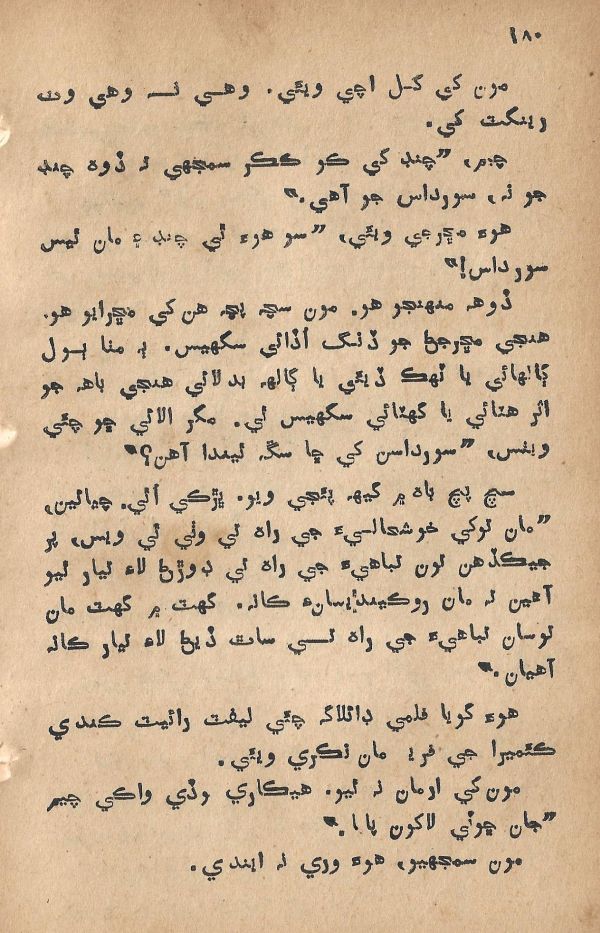 ١٨٠
مون کي کل اچي ويئي. وهي نہ وهي وٽ
رينگٽ کي.
چيم، ”چنڊ کي ڪو ڪڪر سمجهي تہ ڏوھ چنڊ
جو نہ، سورداس جو آهي.“
هوءَ مڇرجي ويئي، ”سو هوءَ ٿي چنڊ ۽ مان ٿيس
سورداس!“
ڏوهہ منهنجو هو. مون سچ پچ هن کي مڇرايو هو.
هنجي مڇرجڻ جو ڏنگ اُڏائي سگهيس. ٻہ مٺا ٻول
ڳالهائي يا ٽهڪ ڏيئي يا ڳالهہ بدلائي هنجي باهہ جو
اثر هٽائي يا گهٽائي سگهيس ٿي. مگر الائي ڇو چئي
ويٺس، ”سورداسن کي ڇا سڱ ٿيندا آهن؟“
سچ پچ باھ ۾ گيهہ پئجي ويو. ڀڙڪي اُٿي. چيائين،
”مان توکي خوشحاليءَ جي راھ تي وٺي ٿي ويس، پر
جيڪڏهن تون تباهيءَ جي راھ تي ڊوڙڻ لاءِ تيار ٿيو
آهين تہ مان روڪيندي‌سانءِ ڪانہ. گهٽ ۾ گهٽ مان
توسان تباهيءَ جي راھ تي ساٿ ڏيڻ لاءِ تيار ڪانہ
آهيان.“
هوءَ گويا فلمي ڊائلاگ چئي ليفٽ رائيٽ ڪندي
ڪئميرا جي فريم مان نڪري ويئي.
مون کي ارمان نہ ٿيو. هيڪاري وڏي واڪي چيم
”جان ڇوٽي لاکون پايا.“
مون سمجهيو، هوءَ وري نہ ايندي.